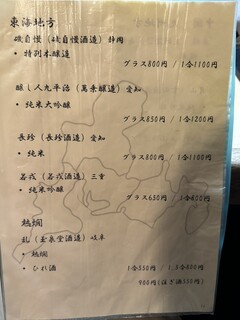 東海地方
磯自慢（磯自慢酒造）静岡
・特別本醸造
グラス800円 / 1合1100円
醸し人九平治（萬乗醸造）愛知
・純米大吟醸
グラス850円 / 1合1200円
長珍（長珍酒造）愛知
・純米
グラス800円 / 1合1100円
若戎（若戎酒造）三重
・純米吟醸
グラス650円 / 1合800円
熱燗
（玉泉堂酒造）岐阜
・熱燗
1合550円 / 1.5合800円
・ひれ酒
900円（注ぎ酒500円）